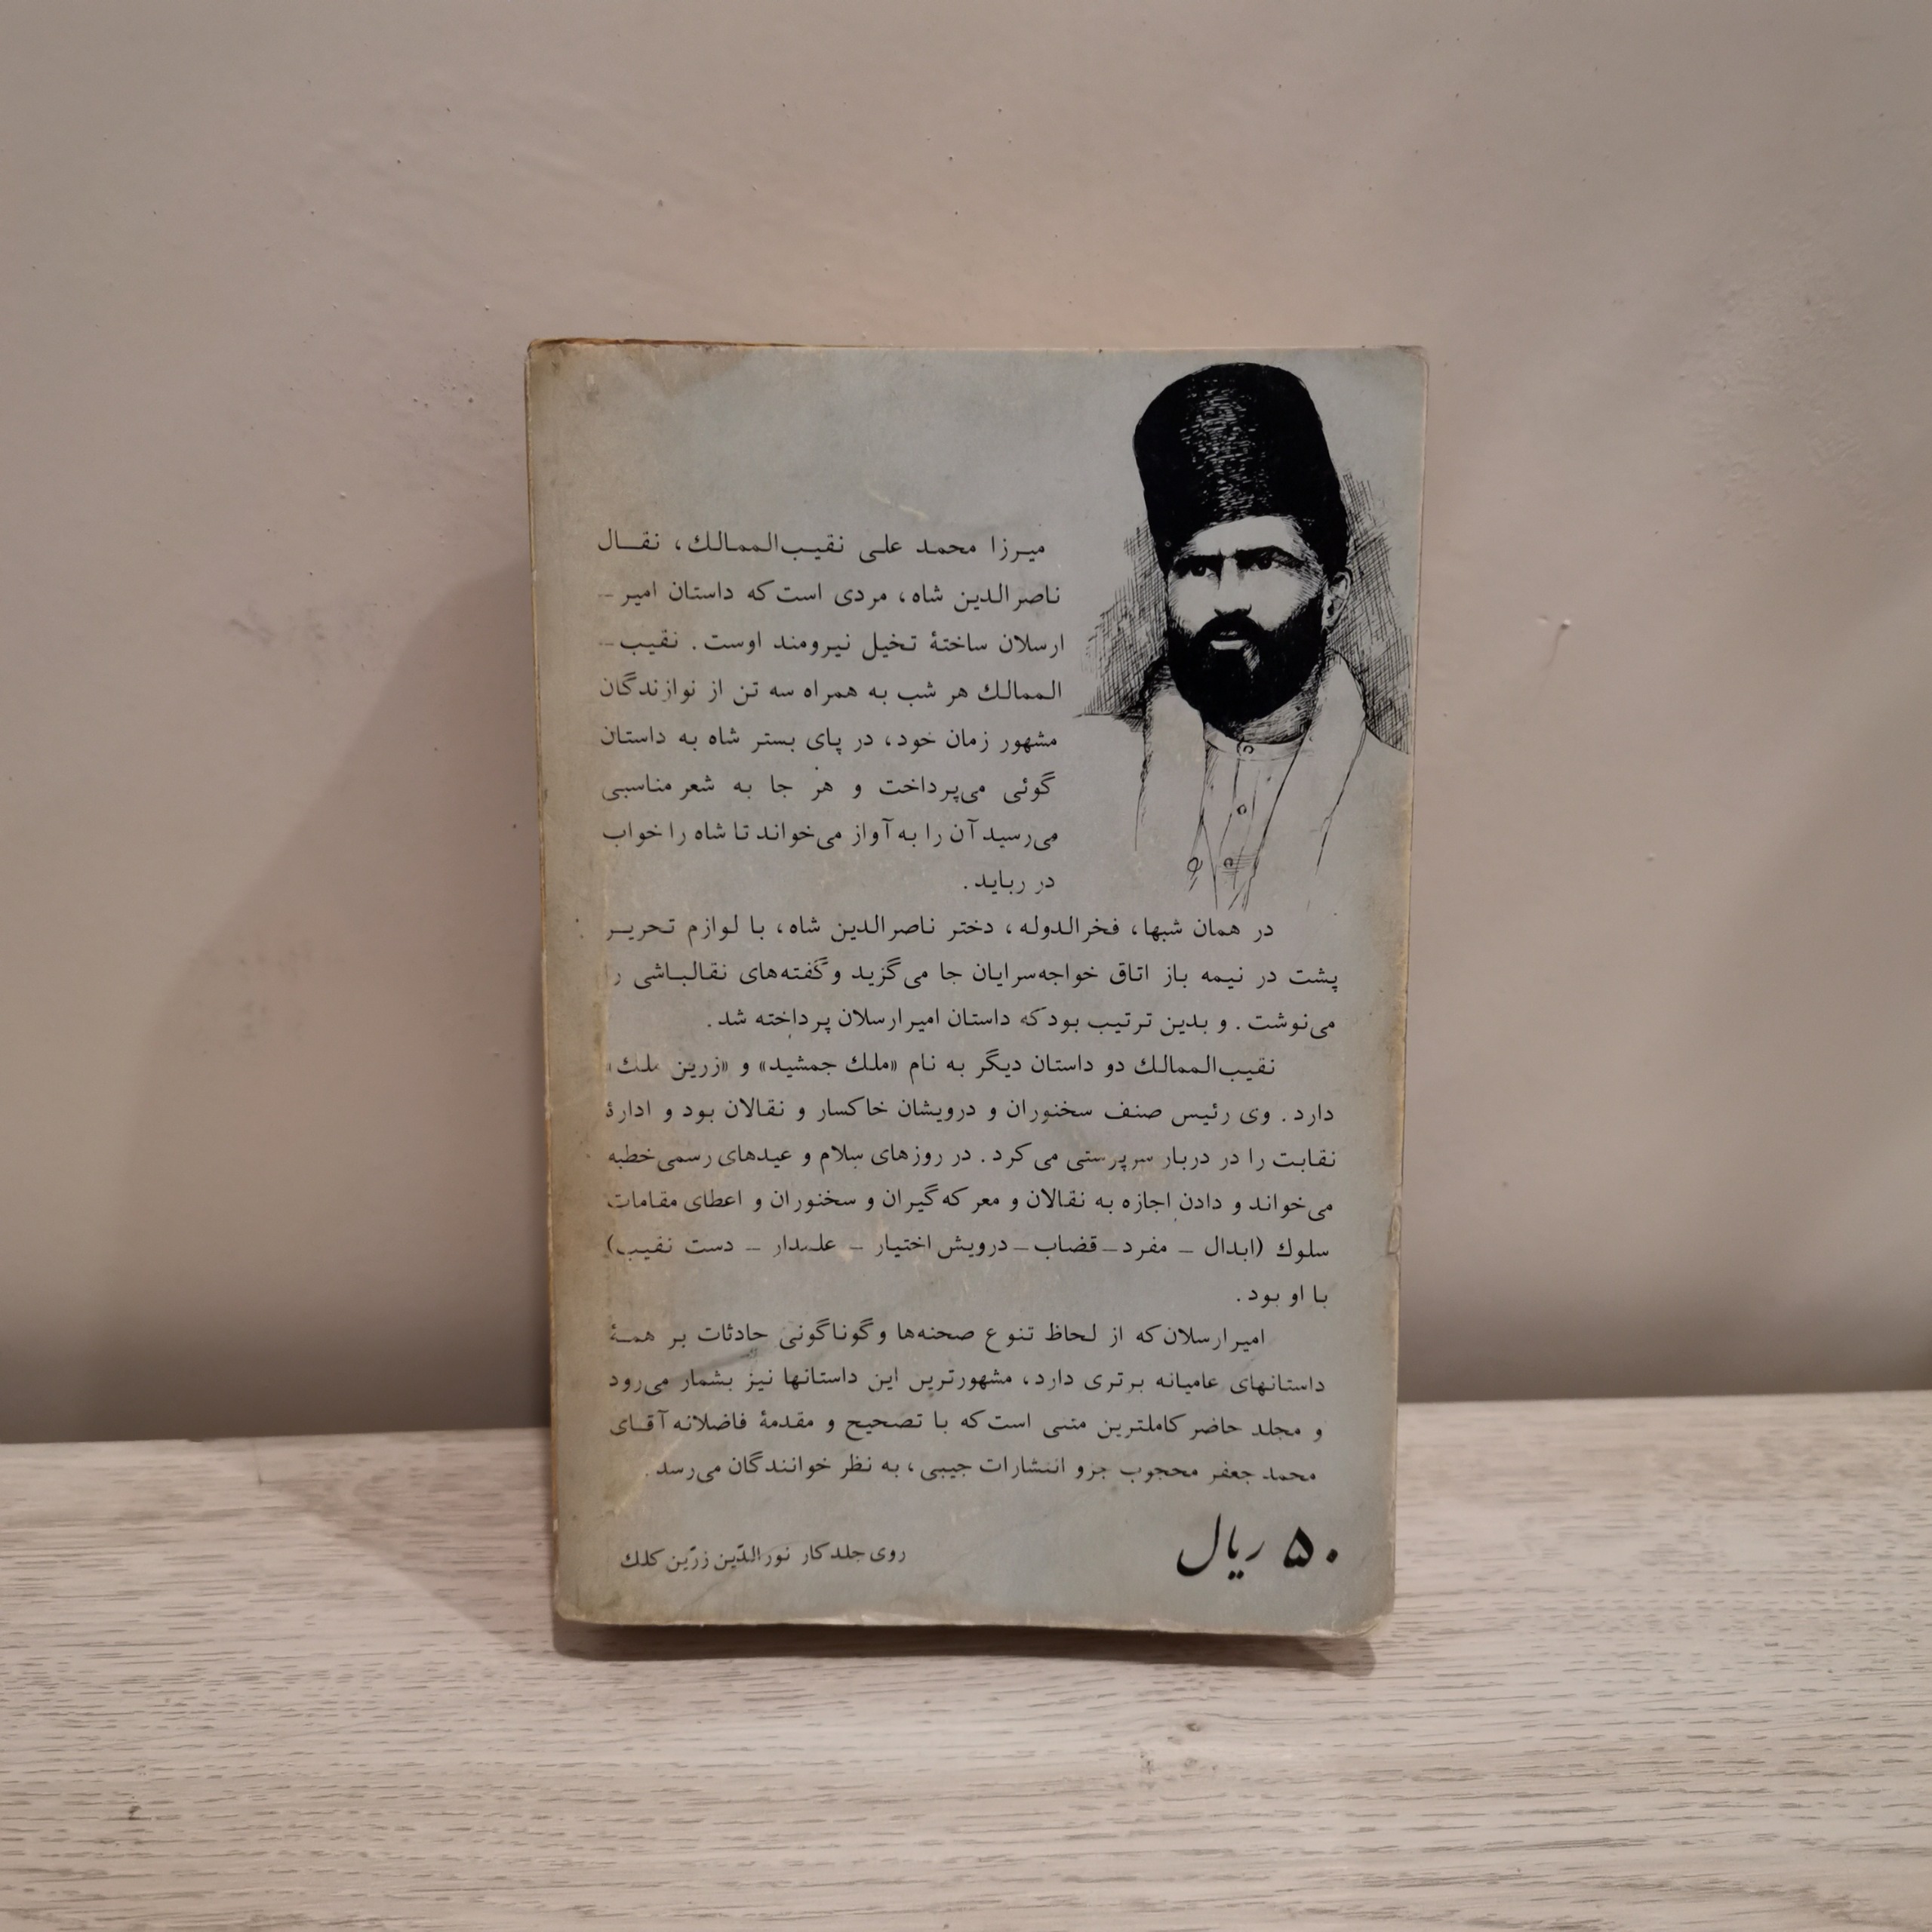 میرزا محمد علی نقیب‌الممالك، نقال
ناصرالدین شاه، مردی است که داستان امیر-
ارسلان ساختهٔ تخیل نیرومند اوست. نقیب-
الممالك هر شب به همراه سه تن از نوازندگان
مشهور زمان خود، در پای بستر شاه به داستان
گوئی می‌پرداخت و هر جا به شعر مناسبی
می‌رسید آن را به آواز می‌خواند تا شاه را خواب
در رباید.
در همان شبها، فخرالدوله، دختر ناصرالدین شاه، با لوازم تحریر
پشت در نیمه باز اتاق خواجه‌سرایان جا می‌گزید و گفته‌های نقالباشی را
می‌نوشت. و بدین ترتیب بود که داستان امیرارسلان پرداخته شد.
نقیب‌الممالك دو داستان دیگر به نام «ملك جمشید» و «زرین ملك»
دارد. وی رئیس صنف سخنوران و درویشان خاکسار و نقالان بود و ادارهٔ
نقابت را در دربار سرپرستی می‌کرد. در روزهای سلام و عیدهای رسمی خطبه
می‌خواند و دادن اجازه به نقالان و معرکه‌گیران و سخنوران و اعطای مقامات
سلوك (ابدال – مفرد – قضاب – درویش اختیار – علمدار – دست نقیب)
با او بود.
امیرارسلان که از لحاظ تنوع صحنه‌ها و گوناگونی حادثات بر همهٔ
داستانهای عامیانه برتری دارد، مشهورترین این داستانها نیز بشمار می‌رود
و مجلد حاضر کاملترین متنی است که با تصحیح و مقدمهٔ فاضلانه آقای
محمد جعفر محجوب جزو انتشارات جیبی، به نظر خوانندگان می‌رسد.
۵۰ ریال
روی جلد کار نورالدّین زرّین کلك